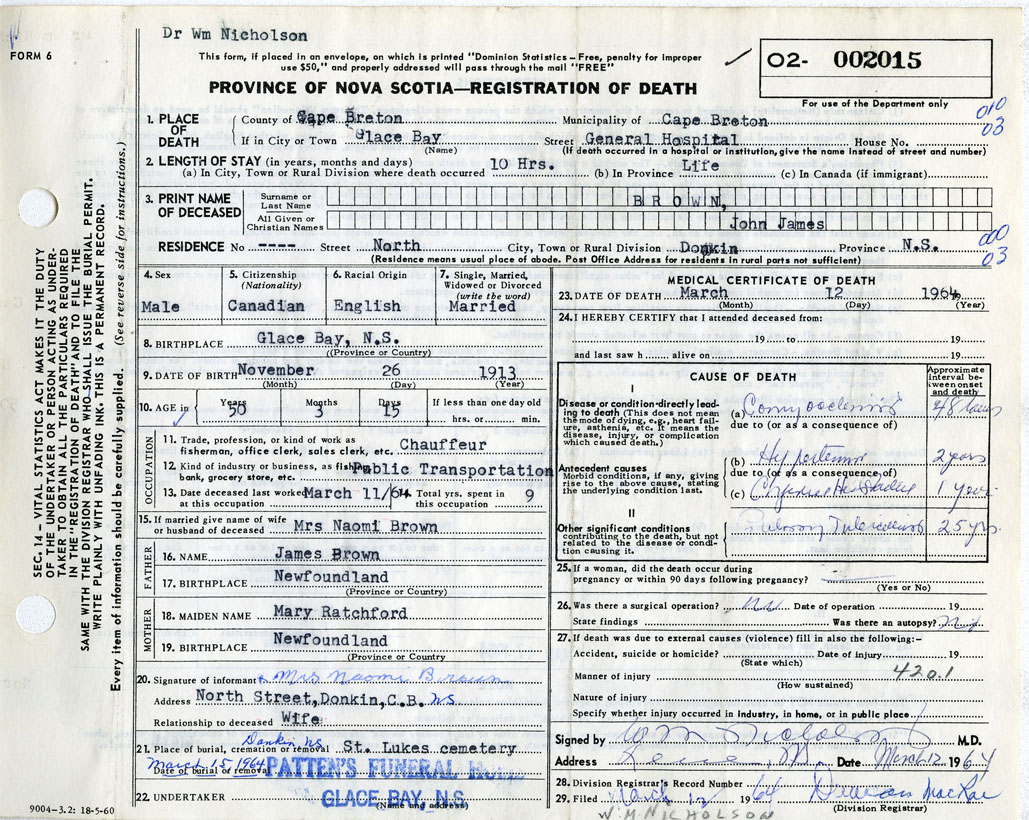 Dr Wm Nicholson
FORM 6
This form, if placed in an envelope, on which is printed "Dominion Statistics–Free, penalty for improper
use $50," and properly addressed will pass through the mail "FREE"
O2- 002015
For use of the Department only
PROVINCE OF NOVA SCOTIA—REGISTRATION OF DEATH
010
03
1. PLACE OF DEATH
County of Cape Breton Municipality of Cape Breton
If in City or Town Glace Bay Street General Hospital House No.
(Name) (If death occurred in a hospital or institution, give the name instead of street and number)
2. LENGTH OF STAY (in years, months and days)
(a) In City, Town or Rural Division where death occurred 10 Hrs. (b) In Province Life (c) In Canada (if immigrant)
3. PRINT NAME OF DECEASED
Surname or Last Name BROWN,
All Given or Christian Names John James
RESIDENCE No ---- Street North City, Town or Rural Division Donkin Province N.S.
000
03
(Residence means usual place of abode. Post Office Address for residents in rural parts not sufficient)
4. Sex
Male
5. Citizenship (Nationality)
Canadian
6. Racial Origin
English
7. Single, Married, Widowed or Divorced (write the word)
Married
8. BIRTHPLACE Glace Bay, N.S.
(Province or Country)
9. DATE OF BIRTH November 26 1913
(Month) (Day) (Year)
10. AGE in Years 50 Months 3 Days 15 If less than one day old
hrs. or min.
OCCUPATION
11. Trade, profession, or kind of work as
fisherman, office clerk, sales clerk, etc. Chauffeur
12. Kind of industry or business, as fishing,
bank, grocery store, etc. Public Transportation
13. Date deceased last worked at this occupation March 11/64 Total yrs. spent in this occupation 9
15. If married give name of wife
or husband of deceased Mrs Naomi Brown
FATHER
16. NAME James Brown
17. BIRTHPLACE Newfoundland
(Province or Country)
MOTHER
18. MAIDEN NAME Mary Ratchford
19. BIRTHPLACE Newfoundland
(Province or Country
20. Signature of informant Mrs Naomi Brown
Address North Street, Donkin, C.B. NS
Relationship to deceased Wife
21. Place of burial, cremation or removal Donkin NS St. Lukes cemetery
March 15, 1964
Date of burial or removal
PATTEN'S FUNERAL
22. UNDERTAKER GLACE BAY, N.S.
(Name and address)
9004-3.2: 18-5-60
MEDICAL CERTIFICATE OF DEATH
23. DATE OF DEATH March 12 1964
(Month) (Day) (Year)
24. I HEREBY CERTIFY that I attended deceased from:
19 to 19
and last saw h alive on 19
CAUSE OF DEATH
Approximate interval between onset and death
I
Disease or condition directly leading to death (This does not mean the mode of dying, e.g., heart failure, asthenia, etc. It means the disease, injury, or complication which caused death.)
(a) 48 hours
due to (or as a consequence of)
Antecedent causes
Morbid conditions, if any, giving rise to the above cause, stating the underlying condition last.
(b) Hypertension 2 years
due to (or as a consequence of)
(c) 1 year
II
Other significant conditions
contributing to the death, but not related to the disease or condition causing it.
Pulmonary Tuberculosis 25 yrs.
25. If a woman, did the death occur during
pregnancy or within 90 days following pregnancy?
(Yes or No)
26. Was there a surgical operation? No Date of operation 19
State findings Was there an autopsy?
27. If death was due to external causes (violence) fill in also the following:–
Accident, suicide or homicide? Date of injury 19
(State which)
Manner of injury 420.1
(How sustained)
Nature of injury
Specify whether injury occurred in industry, in home, or in public place
Signed by W M Nicholson M.D.
Address Date March 12 1964
28. Division Registrar's Record Number
29. Filed March 12 1964 Duncan MacRae
(Division Registrar)
W. M. NICHOLSON
SEC. 14 – VITAL STATISTICS ACT MAKES IT THE DUTY
OF THE UNDERTAKER OR PERSON ACTING AS UNDER-
TAKER TO OBTAIN ALL THE PARTICULARS REQUIRED
IN THE "REGISTRATION OF DEATH" AND TO FILE THE
SAME WITH THE DIVISION REGISTRAR WHO SHALL ISSUE THE BURIAL PERMIT.
WRITE PLAINLY WITH UNFADING INK. THIS IS A PERMANENT RECORD.
Every item of information should be carefully supplied. (See reverse side for instructions.)